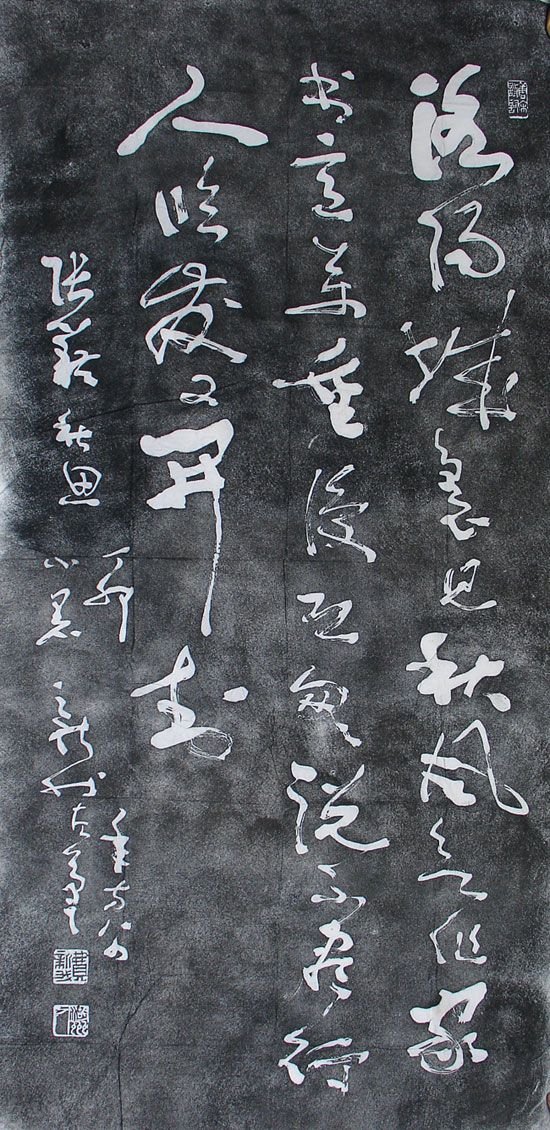 洛阳城裏見秋风欲作家
书意万重復恐匆匆说不尽行
人临发又开封
张籍秋思
丁卯
小暑